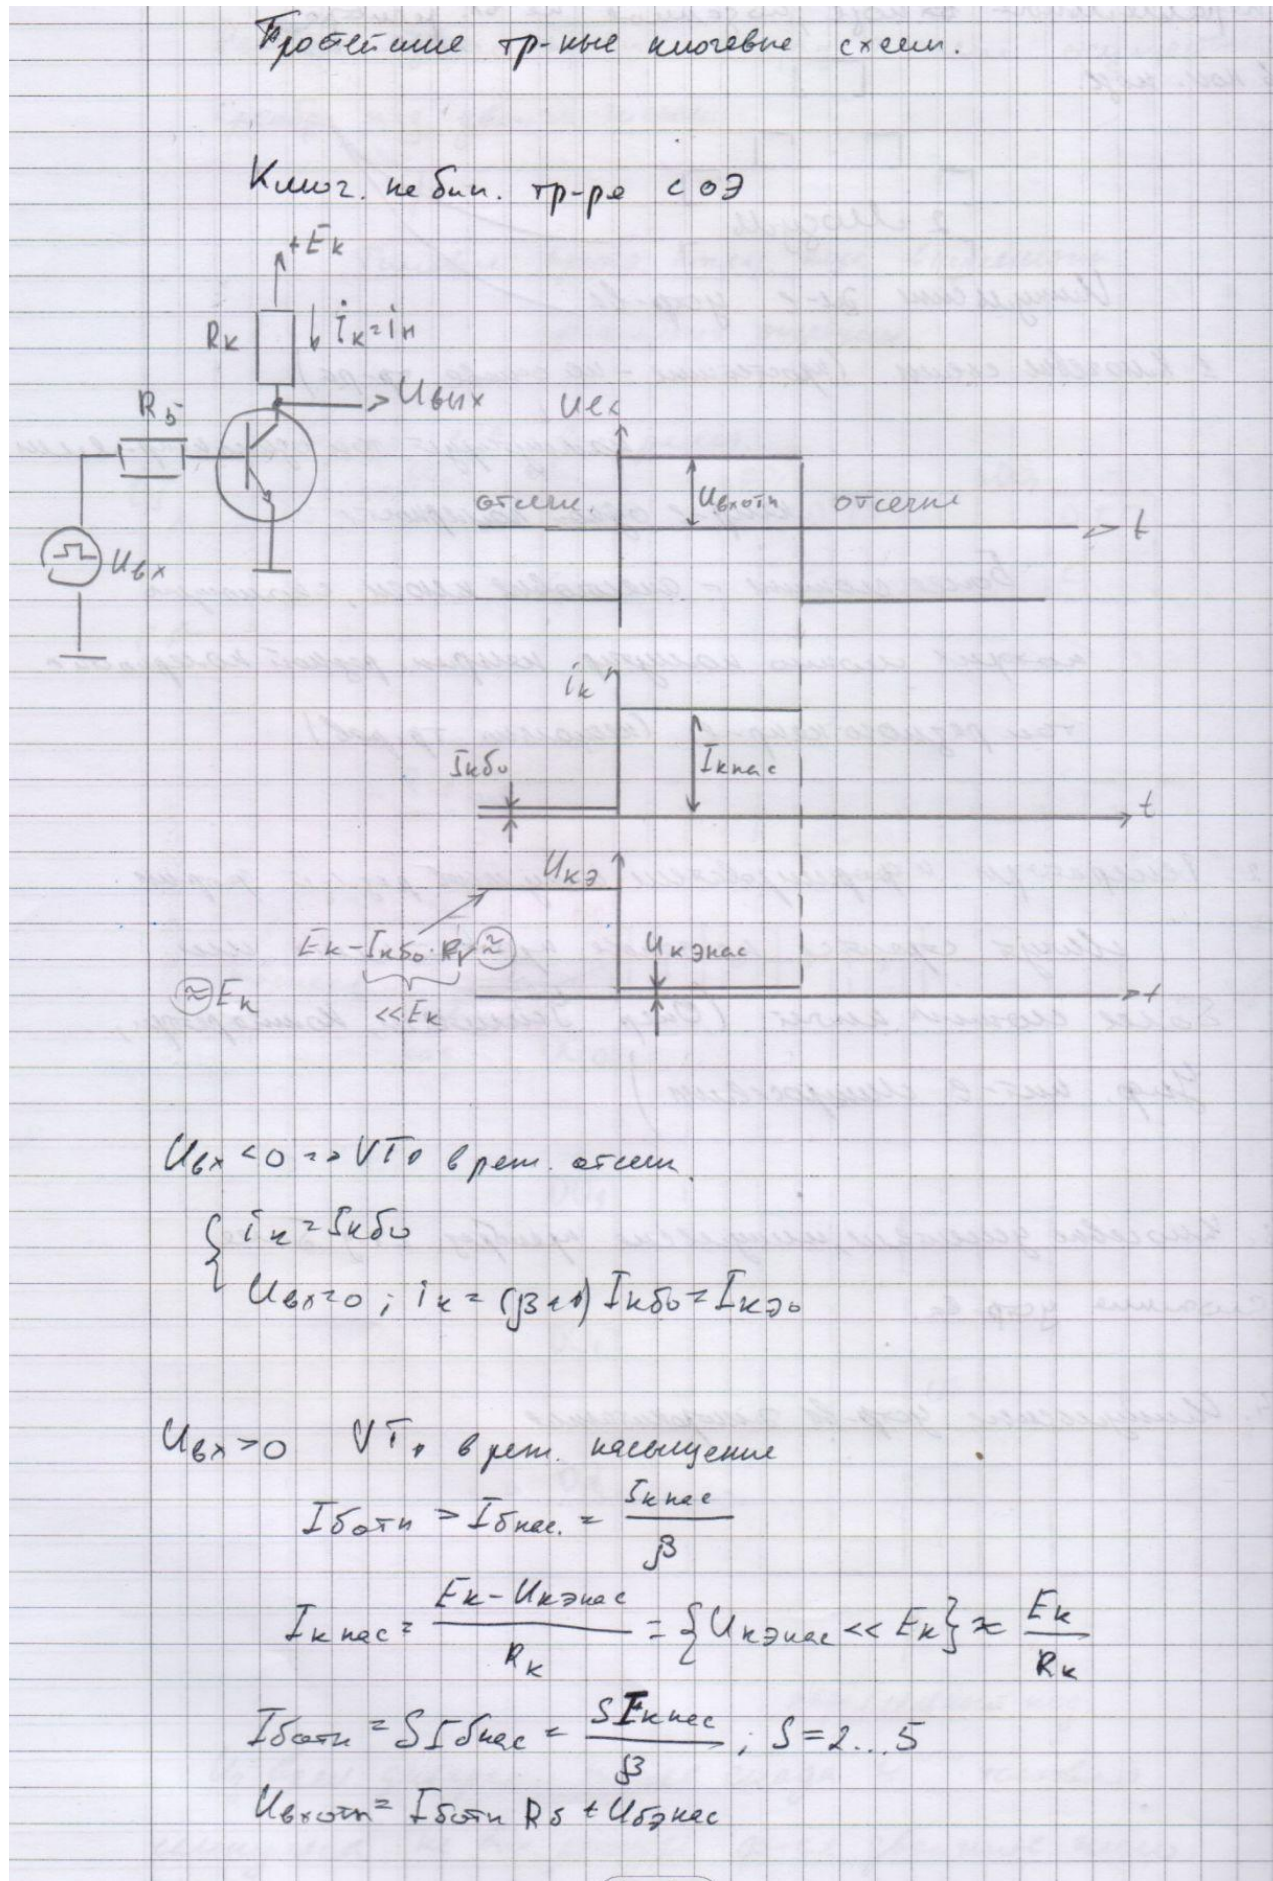 Простейшие тр-ные ключевые схем.
Ключ. на бип. тр-ре с ОЭ
+Eк
Rк
iк=iн
Uвых
Rб
Uвх
Uвх
Uвхотп
отсечк.
отсечка
t
iк
Iкбо
Iкнас
t
Uкэ
Eк-Iкбо·Rк≈
≈Eк
<<Eк
Uкэнас
t
Uвх<0 => VT, в реж. отсеч.
iк=Iкбо
Uвх=0; iк=(β+1)Iкбо=Iкэо
Uвх>0 VT, в реж. насыщение
Iботп > Iбнас. = Iкнас/β
Iкнас = (Eк-Uкэнас)/Rк = {Uкэнас<<Eк} ≈ Eк/Rк
Iботп = SIбнас = SIкнас/β ; S=2...5
Uвхотп = Iботп Rб + Uбэнас